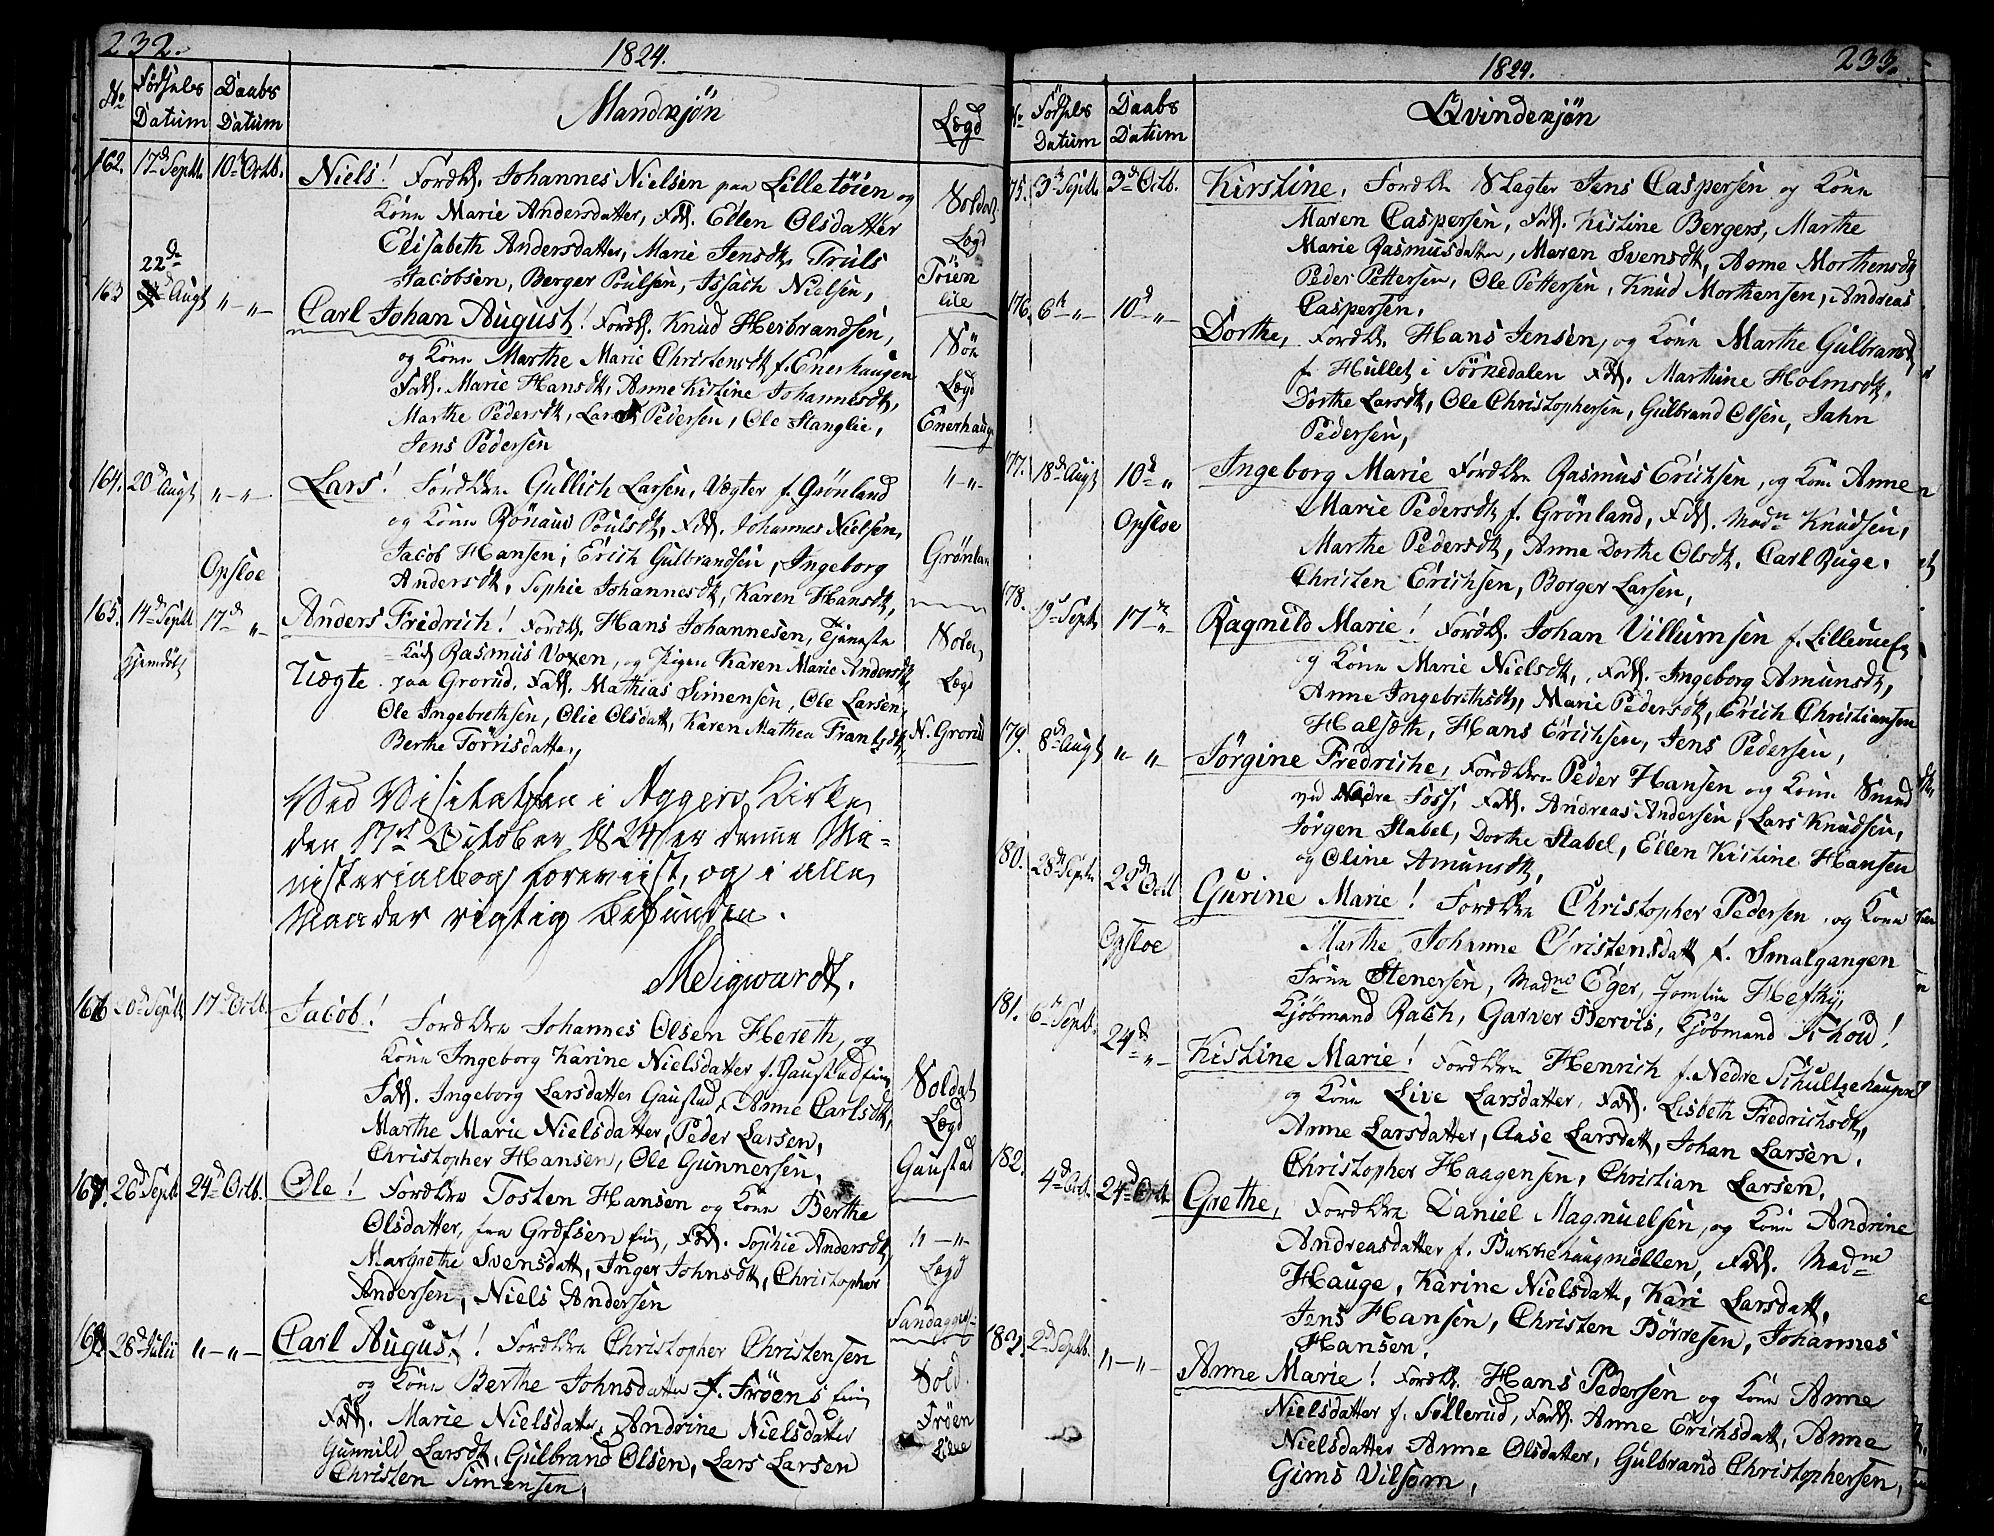 232.
1824.
No Födsels Datum Daabs Datum Mandkjön Lægd
162. 17d Septb. 10d Octb. Niels! Foreldr. Johannes Nielsen paa Lilletöien og
Kone Marie Andersdatter, Fadd. Ellen Olsdatter
Elisabeth Andersdatter, Marie Jensdtr, Truls
Jacobsen, Berger Poulsen, Issach Nielsen,
Soldat Lægd Töien lile
163 22de Augt „ – „ – Carl Johan August! Foreldr. Knud Herbrandsen,
og Kone Marthe Marie Christensdtr f. Enerhaugen
Fadd. Marie Hansdtr, Anne Kistine Johannesdtr,
Marthe Pedersdtr, Lars Pedersen, Ole Stanglie,
Jens Pedersen
Söe Lægd Enerhaug
164. 20d Augt „ – „ – Lars! Foreldre Gullich Larsen, Vægter f. Grönland
og Kone Rönaug Poulsdtr, Fadd. Johannes Nielsen,
Jacob Hansen, Erich Gulbrandsen, Ingeborg
Andersdtr, Sophie Johannesdtr, Karen Hansdtr,
„ – „ – Grönlan
Opsloe
165. 14d Septb 17d „ – Anders Fridrich! Foreldr. Hans Johannesen, Tjeneste
Karl Rasmus Voxen, og Pigen Karen Marie Andersdtr
Uægte paa Grorud. Fadd. Mathias Simensen, Ole Larsen,
Ole Ingebrethsen, Olie Olsdatt, Karen Mathea Frantzdtr,
Berthe Torrisdatter,
Hjemdöbt
Lægd N. Grorud
Ved Visitatsen i Aggers Kirke
den 17d October 1824 er denne Mi-
nisterialbog foreviist, og i alle
Maader rigtig befunden.
166 17d Octb. Jacob! Foreldre Johannes Olsen Hereth, og
Kone Ingeborg Karine Nielsdatter f. Gaustad
Fadd. Ingeborg Larsdatter Gaustad, Anne Carlsdtr,
Marthe Marie Nielsdatter, Peder Larsen,
Christopher Hansen, Ole Gunnersen,
Soldat Lægd Gaustad
167. 26d Septb 24d Octb. Ole! Foreldre Tosten Hansen og Kone Berthe
Olsdatter, fra Grefsen Eie, Fadd. Sophie Andersdtr
Margrethe Svensdatt, Inger Johnsdtt, Christopher
Andersen, Niels Andersen
„ – „ Lægd
168. 28d Julii „ – „ – Carl August! Foreldre Christopher Christensen
og Kone Berthe Johnsdatter f. Fröens Eie
Fadd. Marie Nielsdatter, Andrine Nielsdatter
Gunnild Larsdtr, Gulbrand Olsen, Lars Larsen
Christen Simensen,
Sold. Fröen Lille
1824.
233.
No Födsels Datum Daabs Datum Qvindekjön
175. 3d Septb. 3d Octb. Kirstine, Foreldre Slagter Jens Caspersen og Kone
Maren Caspersen, Fadd. Kistine Bergers, Marthe
Marie Rasmusdatter, Maren Svensdtr, Anne Morthensdtr
Peder Pettersen, Ole Pettersen, Knud Morthensen, Andreas
Caspersen.
176. 6d „ – 10d „ – Dorthe, Foreldr. Hans Jensen, og Kone Marthe Gulbransd
f. Hullet i Sörkedalen Fadd. Marthine Holmsdtr,
Dorthe Larsdtr, Ole Christophersen, Gulbrand Olsen, Jahn
Pedersen,
177. 18d Augt 10d „ Ingeborg Marie Foreldre Rasmus Erichsen, og Kone Anne
Marie Pedersdtr f. Grönland, Fadd. Madme Knudsen,
Marthe Pedersdtr, Anne Dorthe Olsdtr. Carl Ruge.
Christen Erichsen, Borger Larsen,
Opsloe
178. 9d Septb 17de „ Ragnild Marie! Foreldr. Johan Villumsen
og Kone Marie Nielsdtr, Fadd. Ingeborg Amundsdtr,
Anne Ingebrethsdtr, Marie Pedersdtr, Erich Christiansen
Halseth, Hans Erichsen, Jens Pedersen,
179. 8d Augt „ „ – Jörgine Fredriche, Foreldre Peder Hansen og Kone
ved Nedre Foss, Fadd. Andreas Andersen, Lars Knudsen,
Jörgen Stabel, Dorthe Stabel, Ellen Kistine Hansen
og Oline Amundsdtr,
180. 28d Septb 22de Octb Gurine Marie! Foreldre Christopher Pedersen og Kone
Marthe Johanne Christensdatt f. Smalgangen
Frue Stenersen, Madme Eger, Jomfrue Heftÿe,
Kjöbmand Rasch, Garver Bervis, Kjöbmand Schou!
Opsloe
181. 6d Septb. 24d „ – Kistine Marie! Foreldre Henrich f. Nedre Schultzehaugen
og Kone Live Larsdatter, Fadd. Lisbeth Fredrichsdtr,
Anne Larsdatter, Aase Larsdatt, Johan Larsen.
Christopher Haagensen, Christian Larsen,
182. 4d Oct. 24d Octb Grethe, Foreldre Daniel Magnuelsen, og Kone Andrine
Andreasdatter f. Bukkehaugmöllen, Fadd. Madme
Hauge, Karine Nielsdatter, Kari Larsdatt,
Jens Hansen, Christen Börresen, Johannes
Hansen.
183. 2d Septb. „ – „ – Anne Marie! Foreldr. Hans Pedersen og Kone Anne
Nielsdatter f. Sollerud, Fadd. Anne Erichsdatt, Anne
Nielsdatter Anne Olsdatter, Gulbrand Christophersen,
Gims Vilsom,